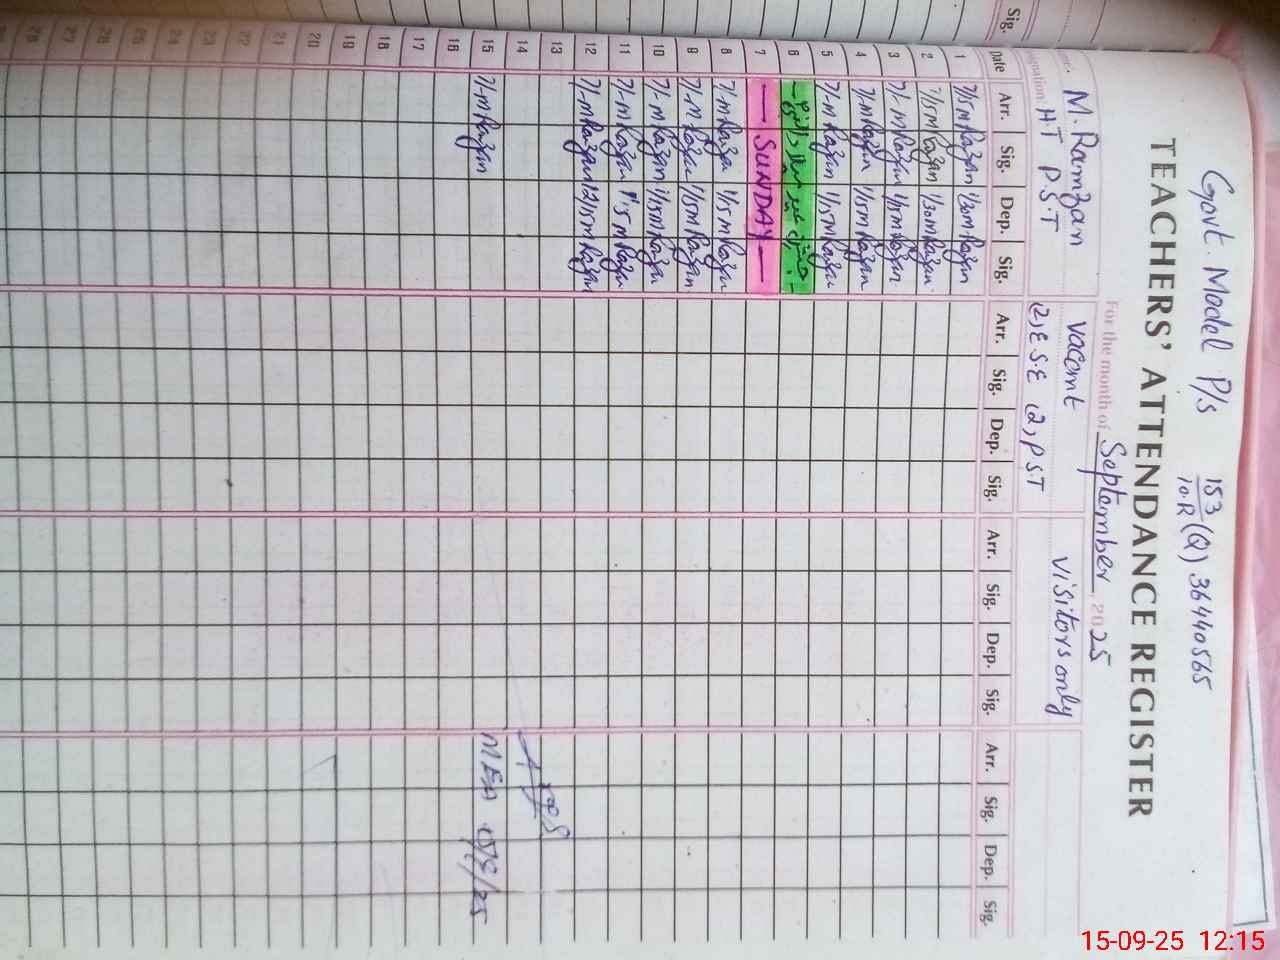 Govt. Model P/s 153/10.R (Q) 36440565
TEACHERS' ATTENDANCE REGISTER
For the month of September, 2025
M. Ramzan
vacant
visitors only
H.T P.S.T
(2) E.S.E (2) P.S.T
Date Arr. Sig. Dep. Sig. Arr. Sig. Dep. Sig. Arr. Sig. Dep. Sig. Arr. Sig. Dep. Sig.
1 7/15 M Ramzan 1/30 M Ramzan
2 7/15 M Ramzan 1/30 M Ramzan
3 7/- M Ramzan 1/15 M Ramzan
4 7/- M Ramzan 1/15 M Ramzan
5 7/- M Ramzan 1/15 M Ramzan
6
7 — SUNDAY —
8 7/- M Ramzan 1/15 M Ramzan
9 7/- M Ramzan 1/15 M Ramzan
10 7/- M Ramzan 1/15 M Ramzan
11 7/- M Ramzan 1/15 M Ramzan
12 7/- M Ramzan 12/15 M Ramzan
13
14
15 7/- M Ramzan MEA 15/9/25
16
17
18
19
20
21
22
23
24
25
26
27
28
Sig.
15-09-25 12:15